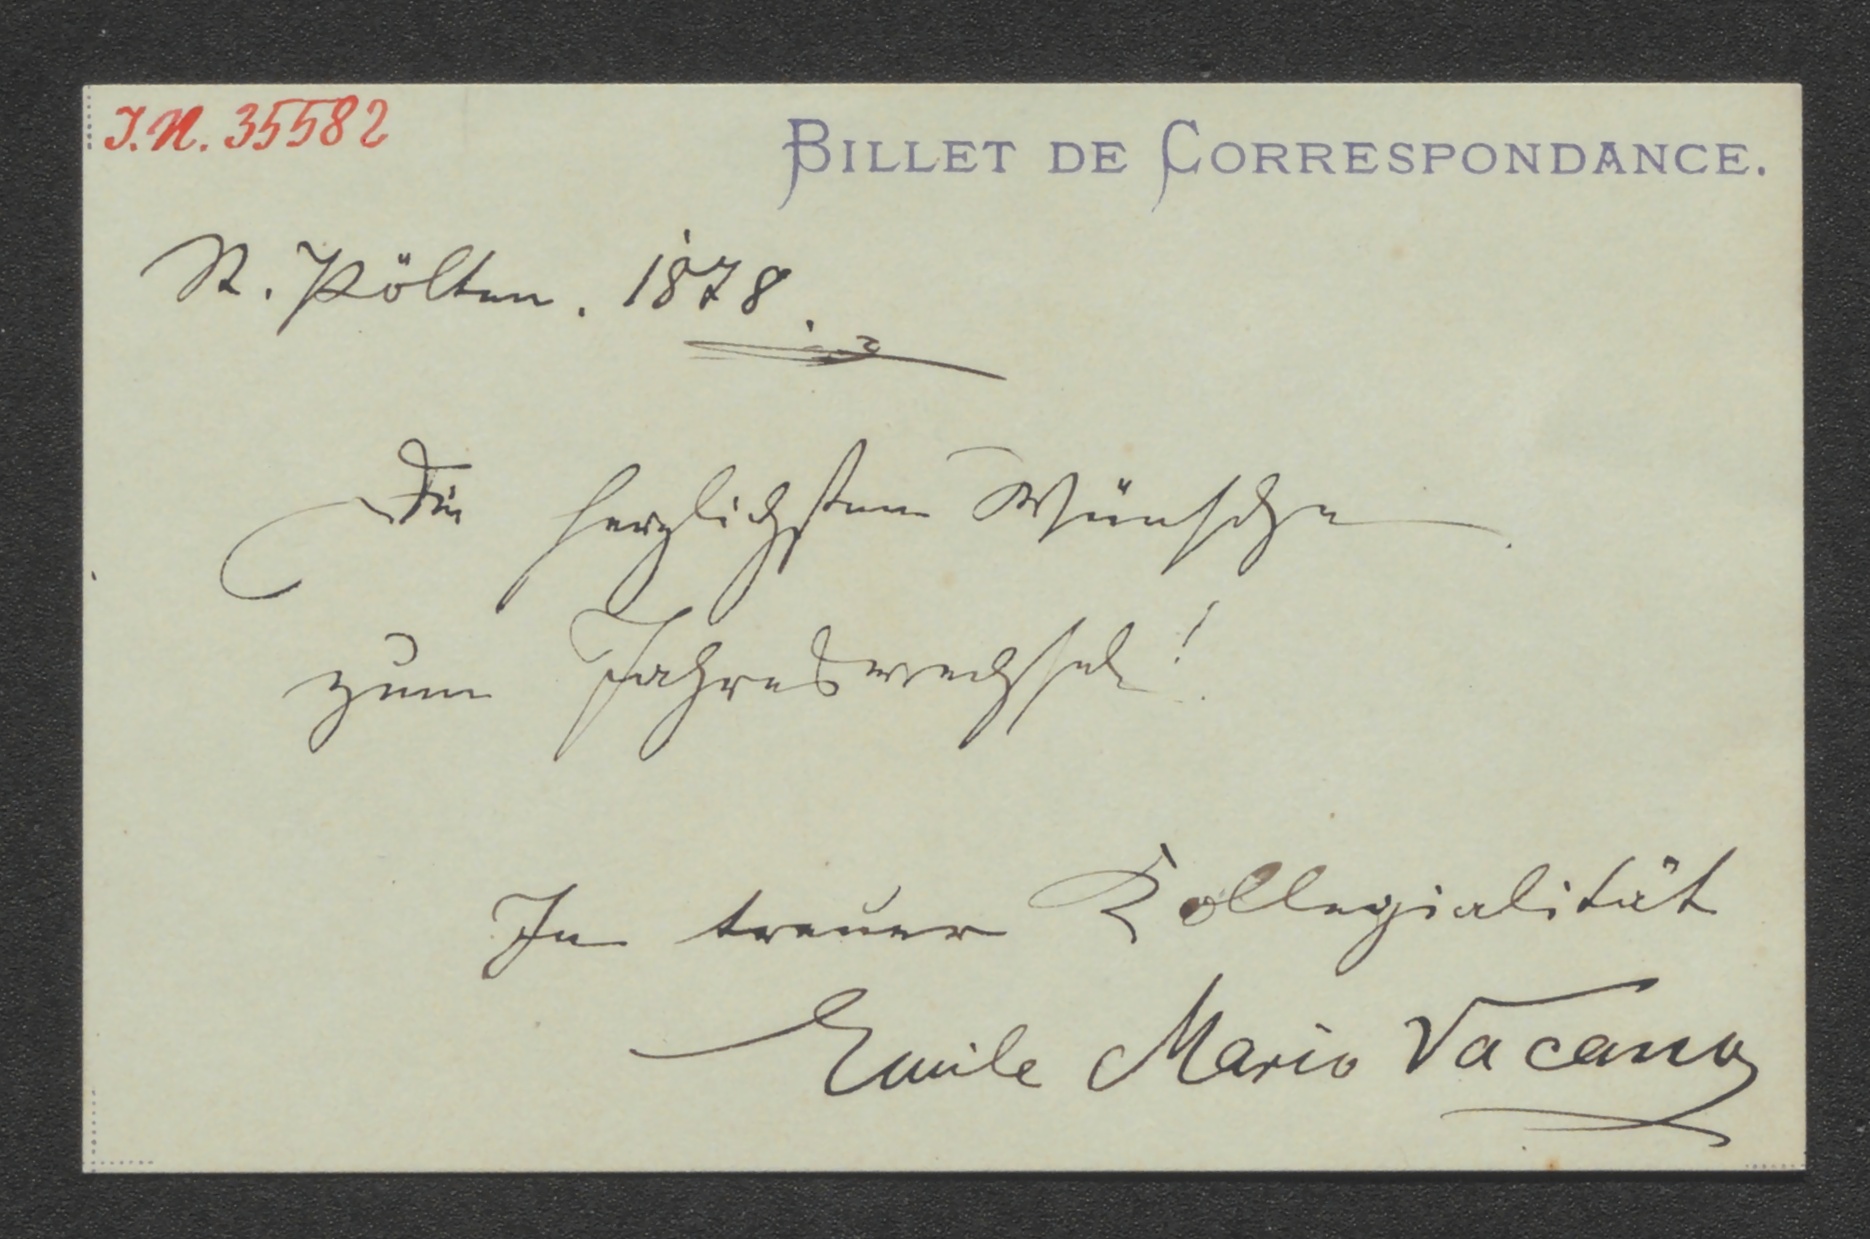 J.N. 35582
BILLET DE CORRESPONDANCE.
St. Pölten. 1878.
Die herzlichsten Wünsche
zum Jahreswechsel!
In treuer Kollegialität
Emile Mario Vacano